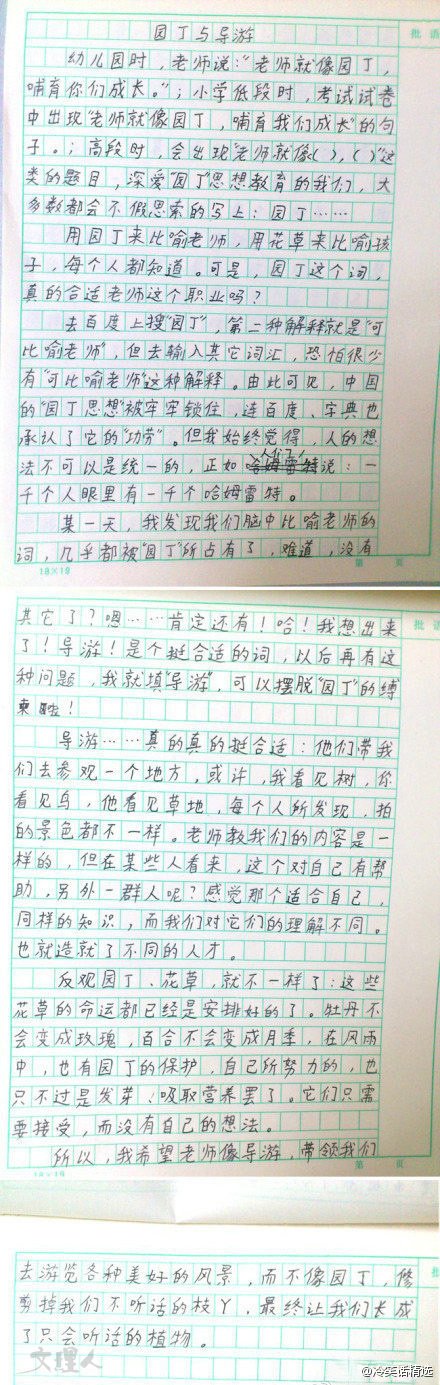 批语
园丁与导游
幼儿园时，老师说：“老师就像园丁，
哺育你们成长。”；小学低段时，考试试卷
中出现“老师就像园丁，哺育我们成长”的句
子。；高段时，会出现“老师就像( )，( )”这
类的题目，深爱“园丁”思想教育的我们，大
多数都会不假思索的写上：园丁……
用园丁来比喻老师，用花草来比喻孩
子，每个人都知道。可是，园丁这个词，
真的合适老师这个职业吗？
去百度上搜“园丁”，第二种解释就是“可
比喻老师”，但去输入其它词汇，恐怕很少
有“可比喻老师”这种解释。由此可见，中国
的“园丁思想”被牢牢锁住，连百度、字典也
承认了它的“功劳”。但我始终觉得，人的想
法不可以是统一的，正如人们说：一
千个人眼里有一千个哈姆雷特。
某一天，我发现我们脑中比喻老师的
词，几乎都被“园丁”所占有了，难道，没有
18×19
第 页
批语
其它了？嗯……肯定还有！哈！我想出来
了！导游！是个挺合适的词，以后再有这
种问题，我就填“导游”，可以摆脱“园丁”的缚
束啦！
导游……真的真的挺合适：他们带我
们去参观一个地方，或许，我看见树，你
看见鸟，他看见草地，每个人所发现，拍
的景色都不一样。老师教我们的内容是一
样的，但在某些人看来，这个对自己有帮
助，另外一群人呢？感觉那个适合自己，
同样的知识，而我们对它们的理解不同。
也就造就了不同的人才。
反观园丁、花草，就不一样了：这些
花草的命运都已经是安排好的了。牡丹不
会变成玫瑰，百合不会变成月季，在风雨
中，也有园丁的保护，自己所努力的，也
只不过是发芽、吸取营养罢了。它们只需
要接受，而没有自己的想法。
所以，我希望老师像导游，带领我们
18×19
第 页
批
去游览各种美好的风景，而不像园丁，修
剪掉我们不听话的枝丫，最终让我们长成
了只会听话的植物。
文理人
@冷笑话精选